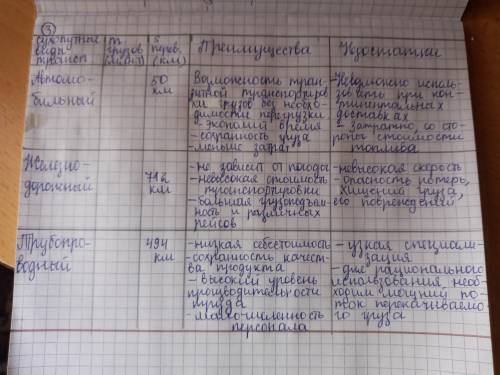 3
Сухопутные
виды
трансп.
m
грузов
s
перев.
(км)
Преимущества
Недостатки
Автомо-
бильный
50
км
Возможность тран-
зитной транспортиров
ки грузов без необхо-
димости перегрузки
- экономия время
- сохранность груза
- меньше затрат
- Невозможно исполь-
зовать при кон-
тинентальных
доставках
- затратно, со сто-
роны стоимости
топлива
Железно-
дорожный
712
км
- не зависит от погоды
- невысокая стоимость
транспортировки
- большая грузоподъем-
ность и различных
рейсов
- невысокая скорость
- опасность потерь,
хищений груза,
его повреждений
Трубопро-
водный
494
км
- низкая себестоимость
- сохранность качест-
ва продукта
- высокий уровень
производительности
труда
- малочисленность
персонала
- узкая специали-
зация
- для рационального
использования необ-
ходим мощный по-
ток перекачиваемо-
го груза